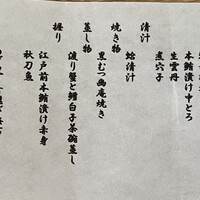 本鮪漬け中とろ
生雲丹
煮穴子
清汁
蛤清汁
焼き物
黒むつ幽庵焼き
蒸し物
渡り蟹と鱈白子茶碗蒸し
握り
江戸前本鮪漬け赤身
秋刀魚